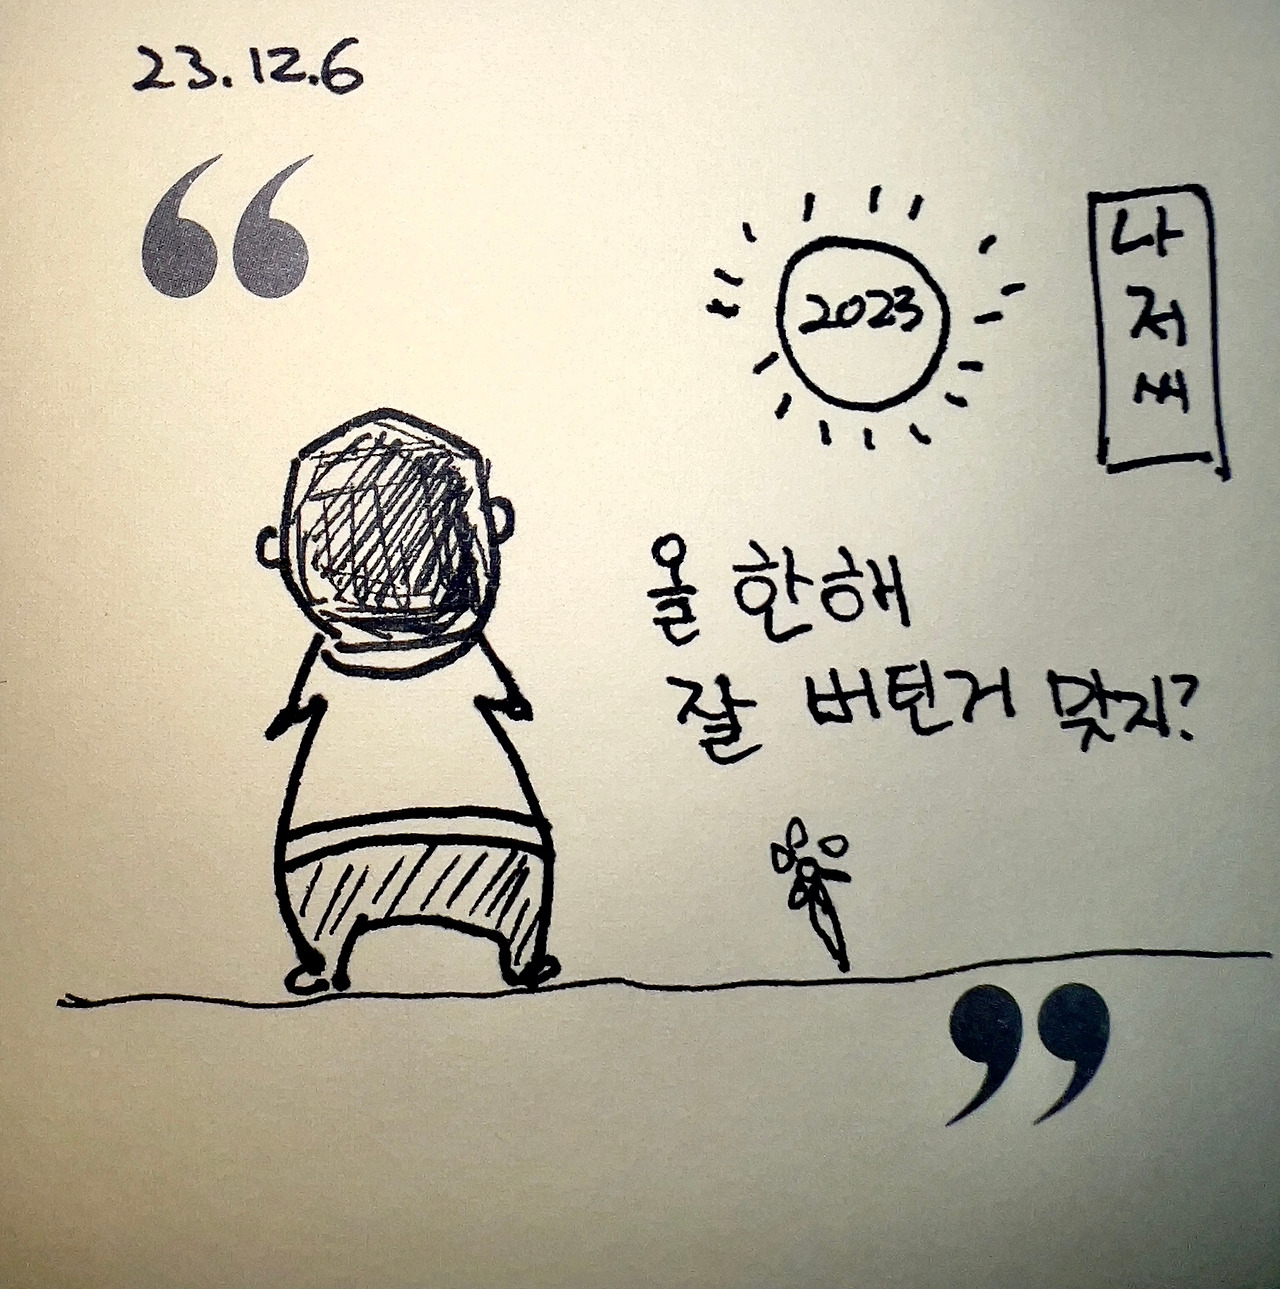 23.12.6
“
2023
나
저
씨
올 한해
잘 버틴거 맞지?
”